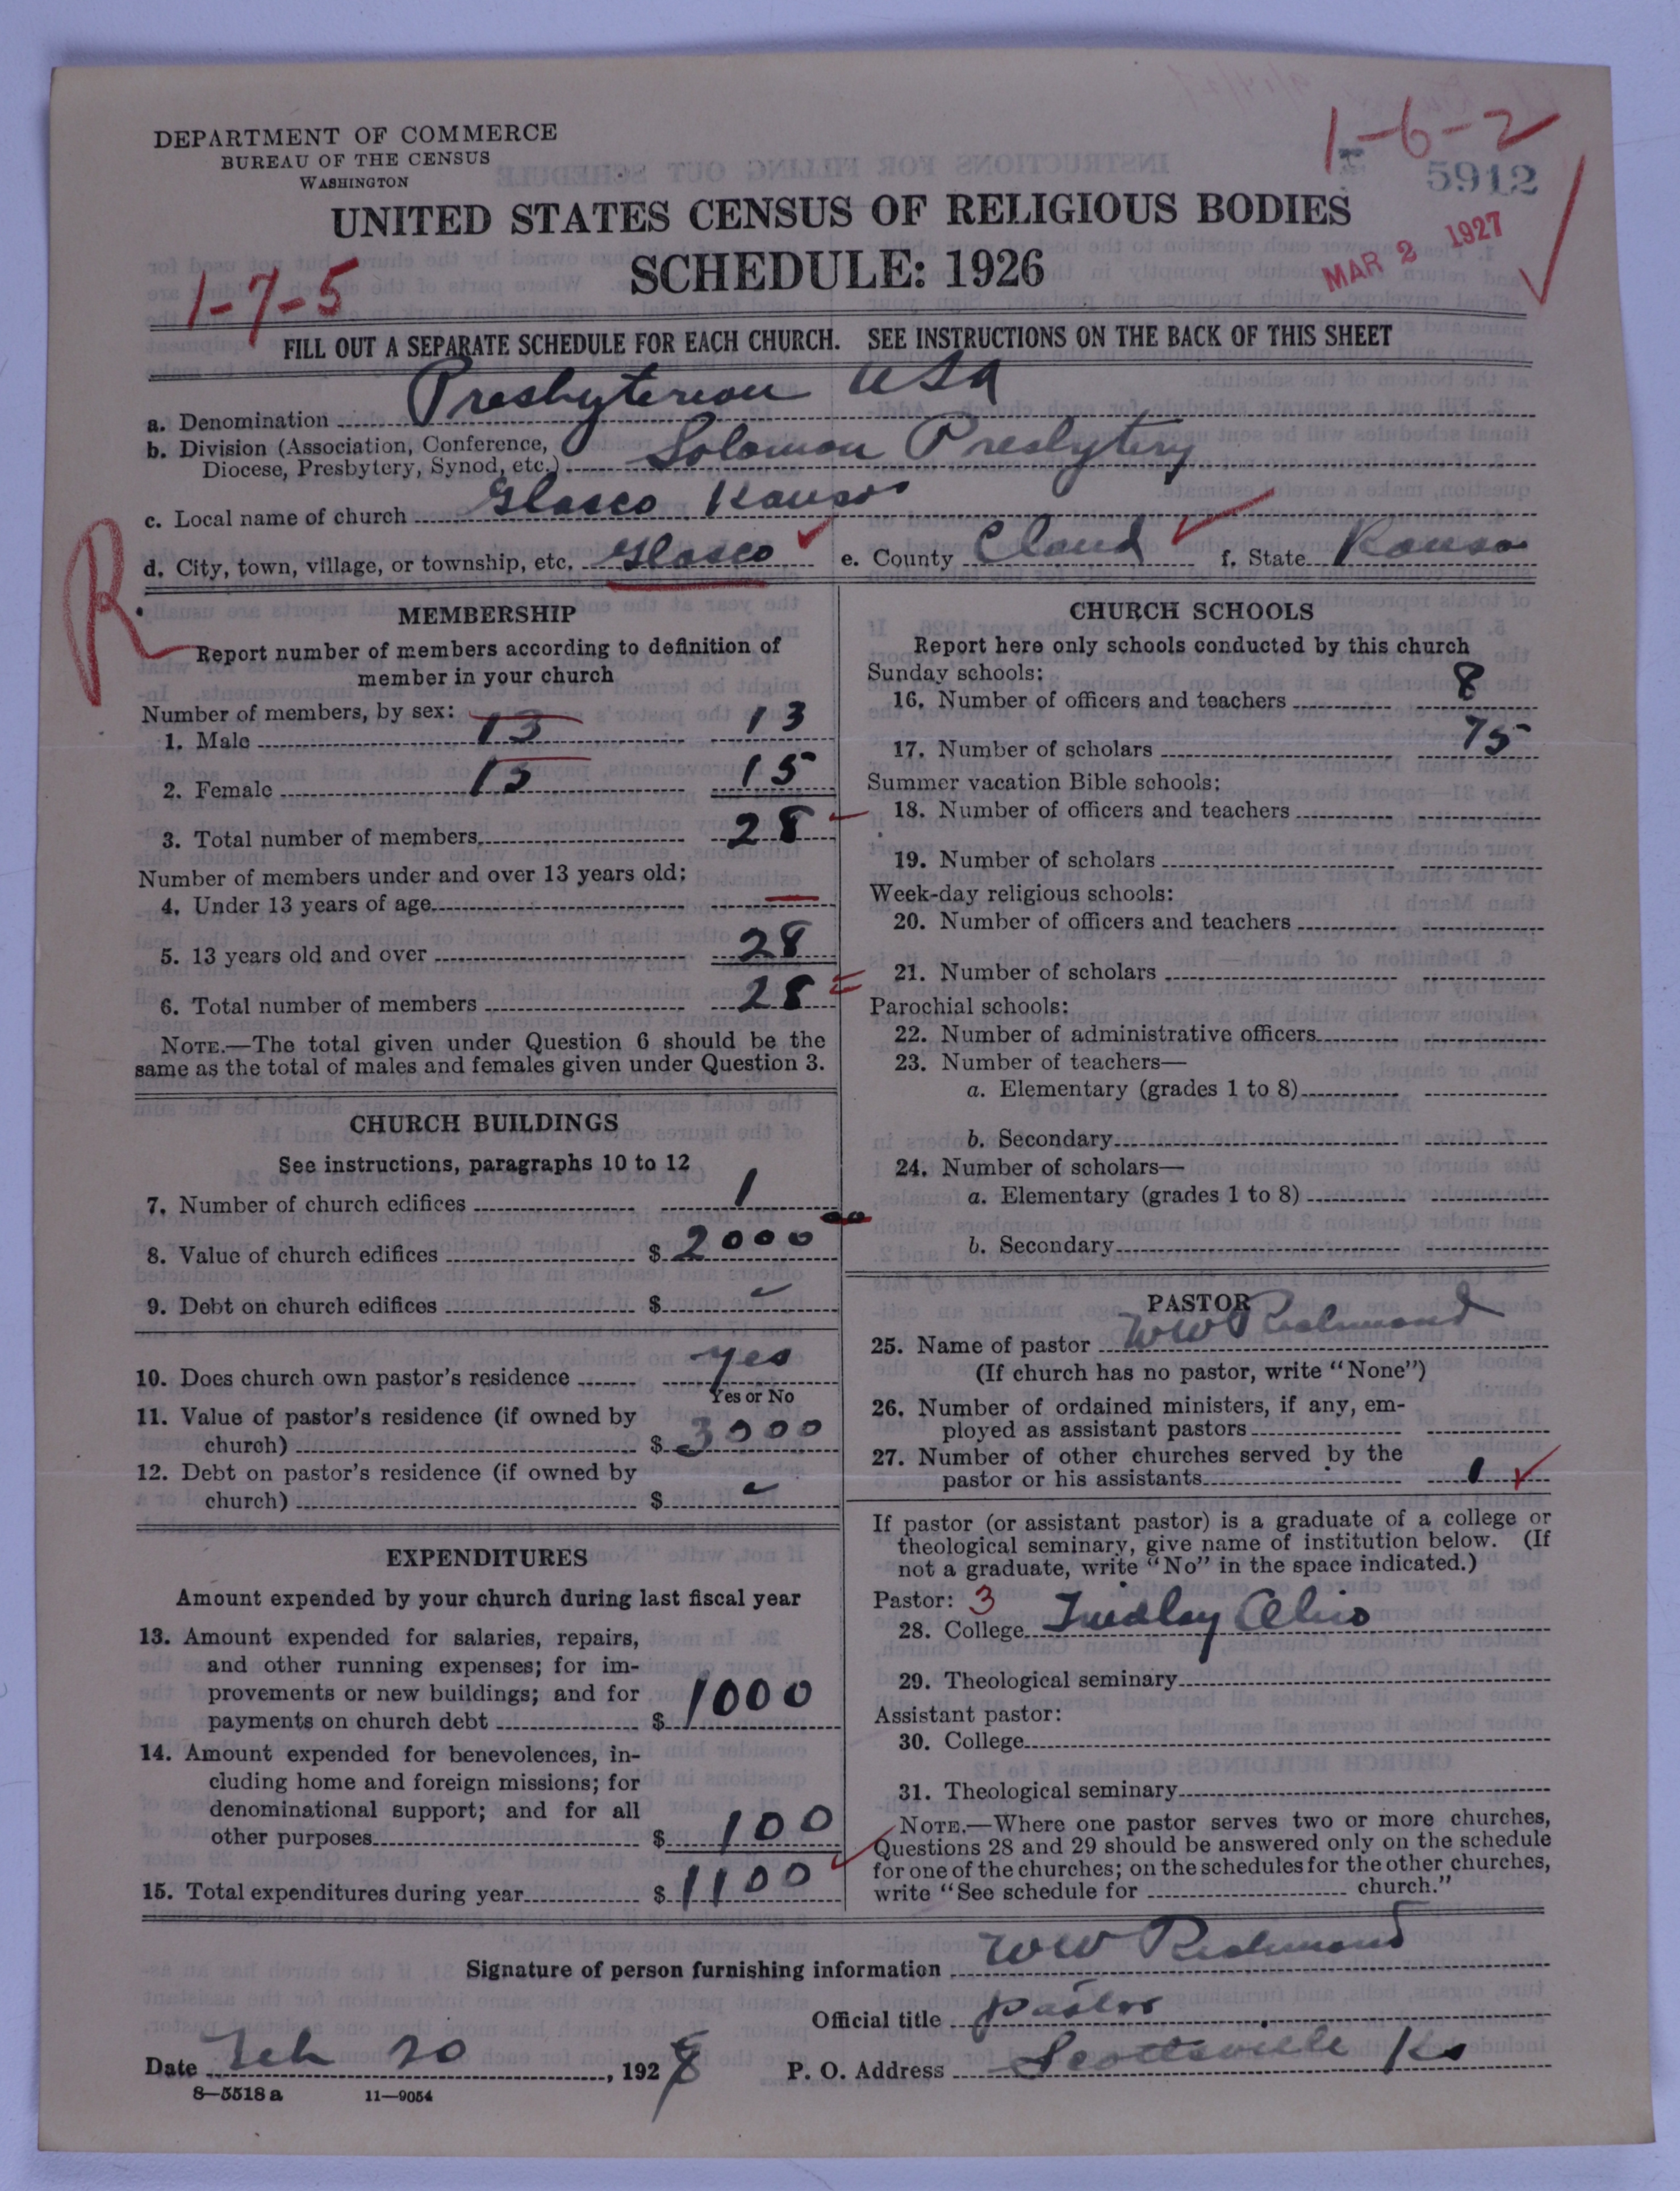 1-6-2
5912
DEPARTMENT OF COMMERCE
BUREAU OF THE CENSUS
WASHINGTON
UNITED STATES CENSUS OF RELIGIOUS BODIES
SCHEDULE: 1926
MAR 2 1927
1-7-5
FILL OUT A SEPARATE SCHEDULE FOR EACH CHURCH. SEE INSTRUCTIONS ON THE BACK OF THIS SHEET
a. Denomination Presbyterian USA
b. Division (Association, Conference,
Diocese, Presbytery, Synod, etc.) Solomon Presbytery
c. Local name of church Glasco Kansas
d. City, town, village, or township, etc. Glasco e. County Cloud f. State Kansas
R
MEMBERSHIP
Report number of members according to definition of
member in your church
Number of members, by sex:
1. Male 13 13
2. Female 15 15
3. Total number of members 28
Number of members under and over 13 years old:
4. Under 13 years of age —
5. 13 years old and over 28
6. Total number of members 28
NOTE.—The total given under Question 6 should be the
same as the total of males and females given under Question 3.
CHURCH BUILDINGS
See instructions, paragraphs 10 to 12
7. Number of church edifices 1
8. Value of church edifices $ 2000
9. Debt on church edifices $
10. Does church own pastor's residence yes
Yes or No
11. Value of pastor's residence (if owned by
church) $ 3000
12. Debt on pastor's residence (if owned by
church) $
EXPENDITURES
Amount expended by your church during last fiscal year
13. Amount expended for salaries, repairs,
and other running expenses; for im-
provements or new buildings; and for
payments on church debt $ 1000
14. Amount expended for benevolences, in-
cluding home and foreign missions; for
denominational support; and for all
other purposes $ 100
15. Total expenditures during year $ 1100
CHURCH SCHOOLS
Report here only schools conducted by this church
Sunday schools:
16. Number of officers and teachers 8
17. Number of scholars 75
Summer vacation Bible schools:
18. Number of officers and teachers
19. Number of scholars
Week-day religious schools:
20. Number of officers and teachers
21. Number of scholars
Parochial schools:
22. Number of administrative officers
23. Number of teachers—
a. Elementary (grades 1 to 8)
b. Secondary
24. Number of scholars—
a. Elementary (grades 1 to 8)
b. Secondary
PASTOR
25. Name of pastor WW Richmond
(If church has no pastor, write "None")
26. Number of ordained ministers, if any, em-
ployed as assistant pastors
27. Number of other churches served by the
pastor or his assistants 1
If pastor (or assistant pastor) is a graduate of a college or
theological seminary, give name of institution below. (If
not a graduate, write "No" in the space indicated.)
Pastor: 3
28. College Findlay Ohio
29. Theological seminary
Assistant pastor:
30. College
31. Theological seminary
NOTE.—Where one pastor serves two or more churches,
Questions 28 and 29 should be answered only on the schedule
for one of the churches; on the schedules for the other churches,
write "See schedule for church."
Signature of person furnishing information WW Richmond
Official title pastor
Date Feb 20, 192 P. O. Address Scottsville Ks
8—5518 a 11—9054